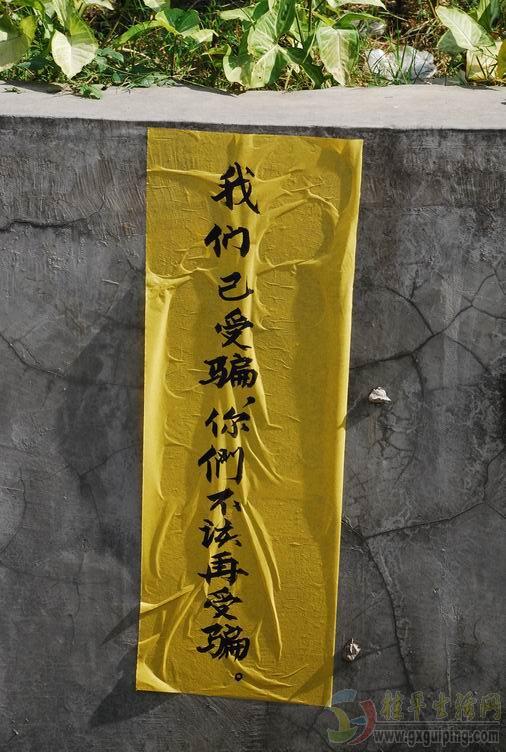 我们已受骗、你們不法再受骗。
桂平生活网
www.gxguiping.com